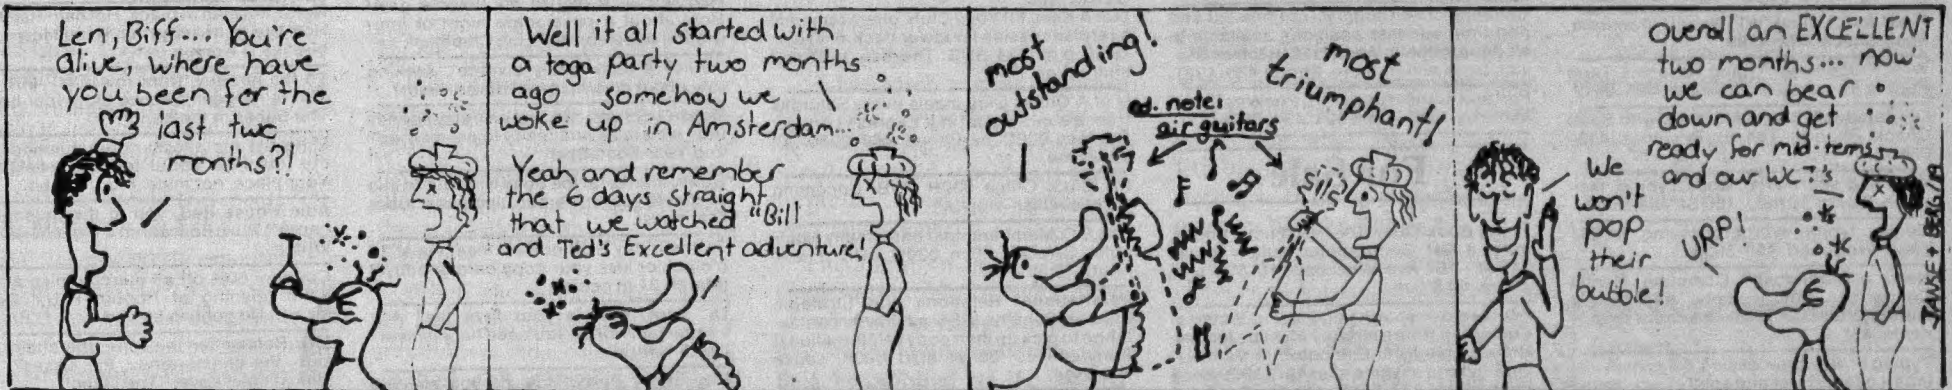 Len, Biff... You're
alive, where have
you been for the
last two
months?!
Well it all started with
a toga party two months
ago somehow we
woke up in Amsterdam...
Yeah and remember
the 6 days straight
that we watched "Bill
and Ted's Excellent adventure!
most
outstanding!
ed. note:
air guitars
most
triumphant!
We
won't
pop
their
bubble!
overall an EXCELLENT
two months... now
we can bear
down and get
ready for mid-terms
and our WC T's
URP!